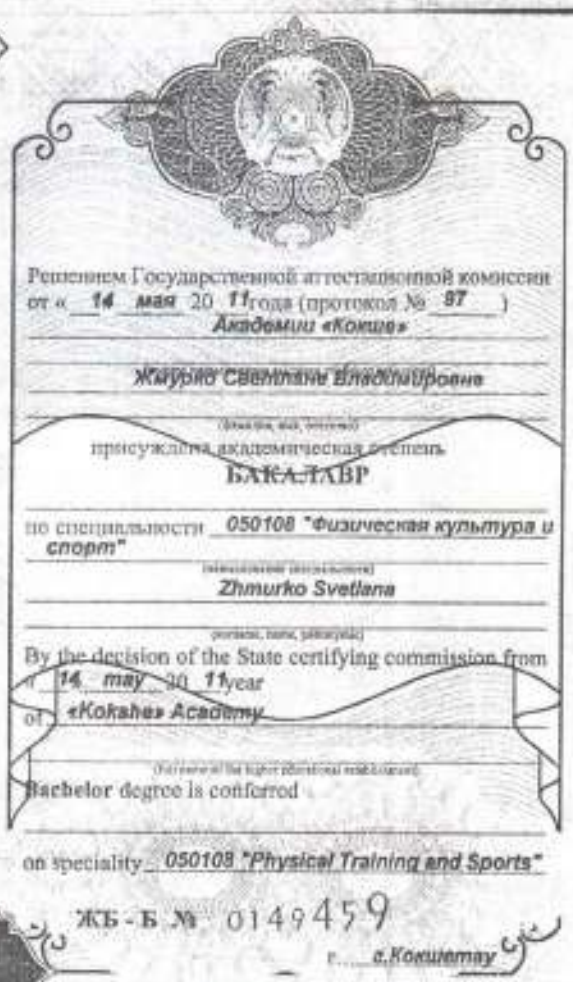 Решением Государственной аттестационной комиссии
от « 14 мая 20 11 года (протокол № 97 )
Академии «Кокше»
Жмурко Светлане Владимировне
(фамилия, имя, отчество)
присуждена академическая степень
БАКАЛАВР
по специальности 050108 "Физическая культура и
спорт"
(наименование специальности)
Zhmurko Svetlana
By the decision of the State certifying commission from
« 14 may 20 11 year
of «Kokshe» Academy
(full name of the higher educational establishment)
Bachelor degree is conferred
on speciality 050108 "Physical Training and Sports"
ЖБ - Б № 0149459
г. г.Кокшетау